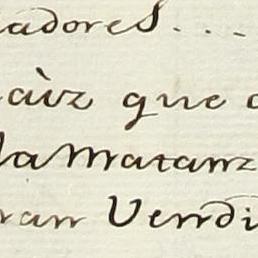 adores....
aàz que
la Matanz
ran Vendi